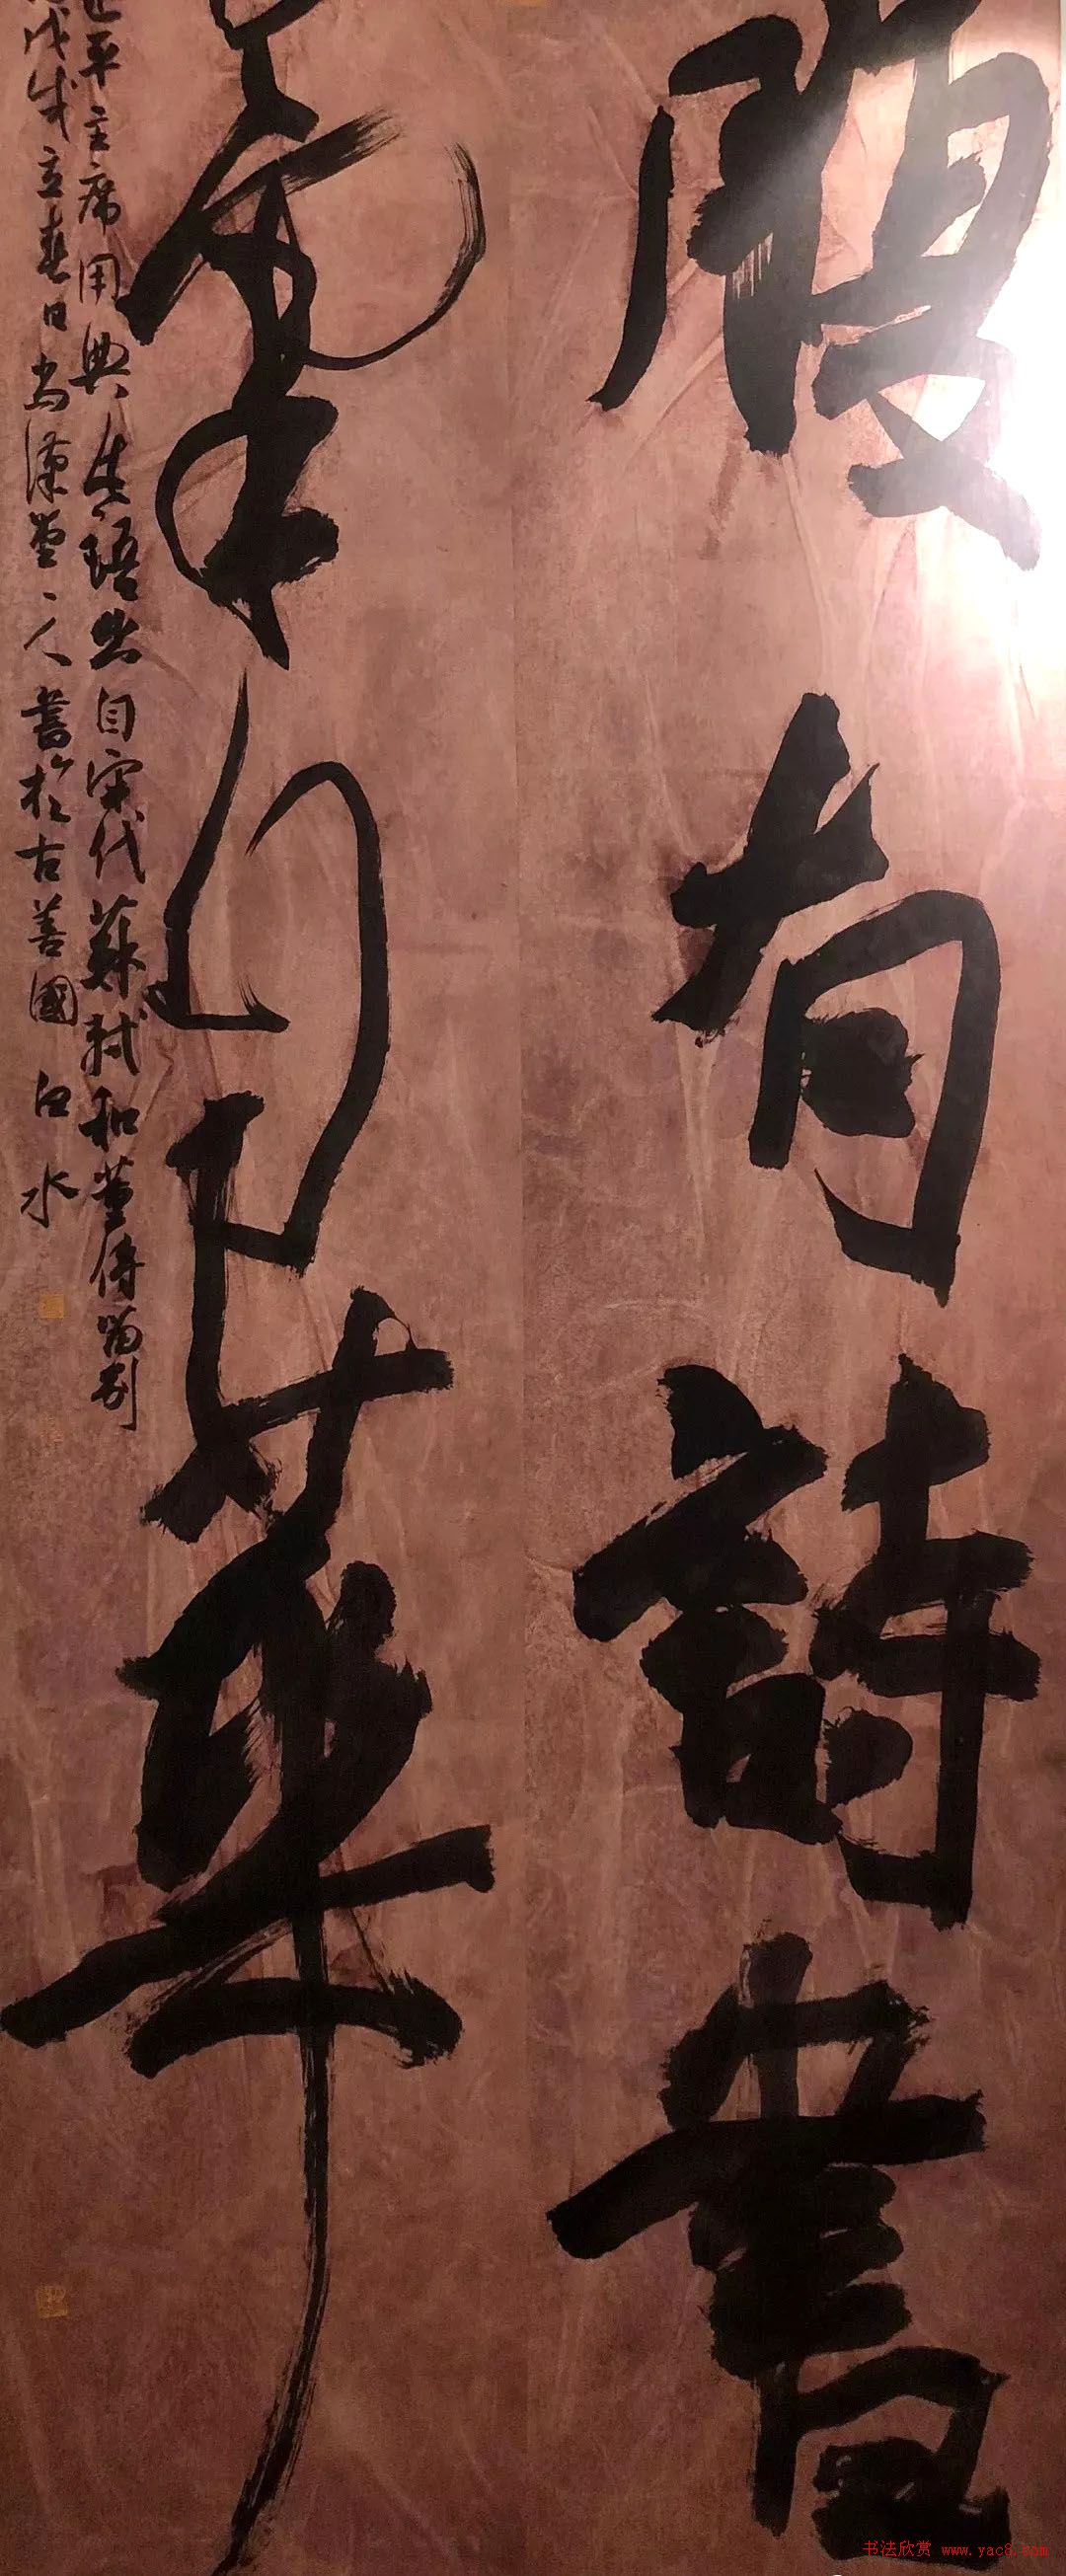 腹有詩書
氣自華
近平主席用典 生語出自宋代蘇軾和董傳留别
戊戌立春日尚漢堂人書於古善國 白水
书法欣赏 www.yac8.com